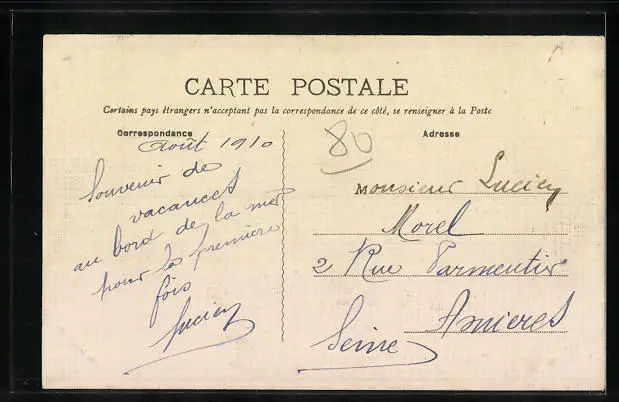 CARTE POSTALE
Certains pays étrangers n'acceptant pas la correspondance de ce côté, se renseigner à la Poste
Correspondance
Août 1910
Souvenir de
vacances
au bord de la mer
pour la première
fois
Lucien
80
Adresse
Monsieur Lucien
Morel
2 Rue Parmentier
Asnieres
Seine